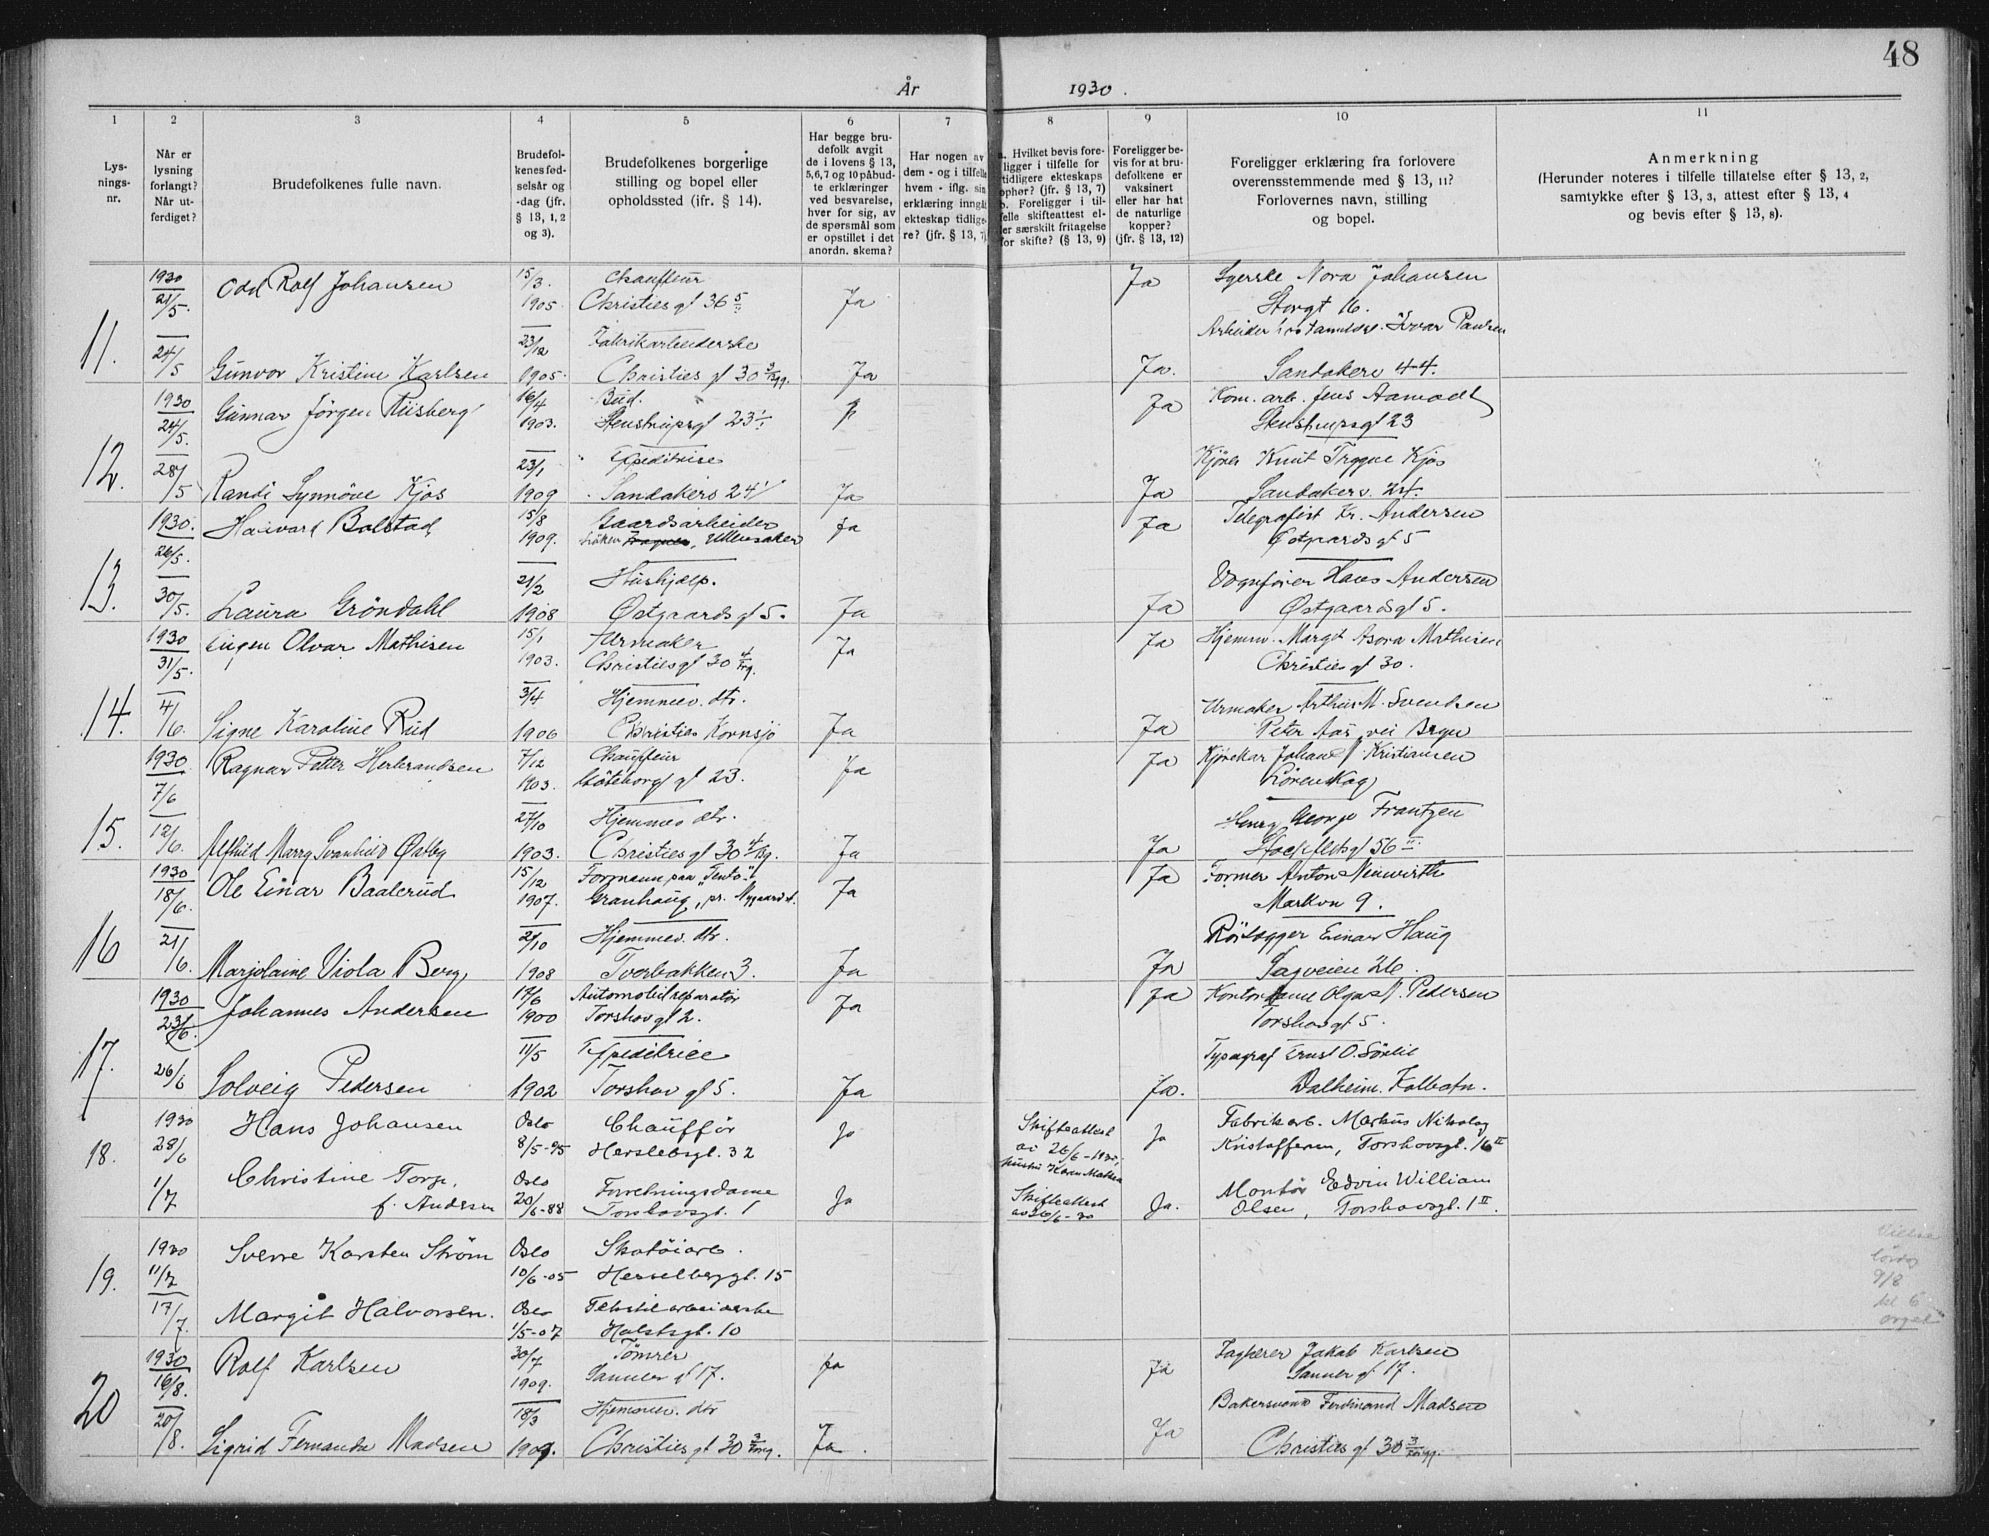 48
År 1930.
1 2 3 4 5 6 7 8 9 10 11
Lysningsnr.
Når er lysning forlangt? Når utferdiget?
Brudefolkenes fulle navn.
Brudefolkenes fødselsår og -dag (jfr. § 13, 1, 2 og 3).
Brudefolkenes borgerlige stilling og bopel eller opholdssted (jfr. § 14).
Har begge brudefolk avgit de i lovens § 13, 5, 6, 7 og 10 påbudte erklæringer ved besvarelse, hver for sig, av de spørsmål som er opstillet i det anordn. skema?
Har nogen av dem - og i tilfelle hvem - iflg. sin erklæring inngåt ekteskap tidligere? (jfr. § 13, 7)
a. Hvilket bevis foreligger i tilfelle for tidligere ekteskaps ophør? (jfr. § 13, 7)
b. Foreligger i tilfelle skifteattest eller særskilt fritagelse for skifte? (§ 13, 9)
Foreligger bevis for at brudefolkene er vaksinert eller har hat de naturlige kopper? (jfr. § 13, 12)
Foreligger erklæring fra forlovere overensstemmende med § 13, 11? Forlovernes navn, stilling og bopel.
Anmerkning
(Herunder noteres i tilfelle tillatelse efter § 13, 2, samtykke efter § 13, 3, attest efter § 13, 4 og bevis efter § 13, 8).
11. 1930 21/5. Odd Rolf Johansen 15/3. 1905. Chauffeur Christiesgt 36 Ja Ja Nora Johansen
Storgt 16.
24/5 Gunvor Kristine Karlsen 23/12 1905. Fabrikarbeiderske Christies gt 30 Ja Ja. Arbeider Ivar Paulsen
Sandakerv 44.
12. 1930 24/5. Gunnar Jörgen Riisberg 16/4 1903. Bud. Stenstrupsgt 23 Ja Kom. arb. Jens Aamodt
Stenstrupsgt 23
28/5 Randi Synnöve Kjos 23/1 1909 Expeditrise Sandakerv 24 Ja Ja Kjörer Knut Trygve Kjos
Sandakerv. 24.
13. 1930. 26/5. Haavard Bolstad 15/8 1909. Gaardsarbeider Ullensaker Ja Ja Telegrafist Kr. Andersen
Östgaardsgt 5
30/5. Laura Gröndahl 21/2 1908 Hushjælp. Østgaardsgt 5. Ja Ja Vognfører Hans Andersen
Østgaardsgt 5.
14. 1930 31/5. Eugen Olvar Mathisen 15/1 1903. Urmaker Christiesgt 30 Ja Ja Hjemmv. Margit Asora Mathisen
Christies gt 30.
4/6. Signe Karoline Rud 3/4 1906 Hjemmev. dtr. Christies Kornsjø Ja Ja Urmaker Arthur M. Svendsen
Peter Aas vei Bryn
15. 1930 7/6 Ragnar Petter Herbrandsen 7/12 1903. Chauffeur Göteborggt 23. Ja Ja Johan Kristiansen
Lörenskog
12/6. Alfhild Marry Svanhild Østby 27/10 1903. Hjemmev dtr. Christies gt 30 Ja Ja Henry George Frantzen
Stockfletsgt 56 II
16 1930 18/6. Ole Einar Baalerud 15/12 1907. Formann paa "Tento" Granhaug, pr. Nygaard st. Ja Ja Former Anton Neuwirth
Markvn 9.
21/6. Marjolaine Viola Berg 21/10 1908 Hjemmev. dtr. Tverbakken 3. Ja Ja Rörlegger Einar Haug
Sagveien 26.
17. 1930 23/6. Johannes Andersen 17/6 1900 Automobilreparatør Torshovgt 2. Ja Ja Kontordame Olga M. Pedersen
Torshovgt 5.
26/6 Solveig Pedersen 11/5 1902 Expeditrice Torshov gt 5. Ja Ja. Typograf Ernst O. Sörlie
Dalheim. Kolbotn.
18. 1930 28/6 Hans Johansen Oslo 8/5-95 Chauffør Herslebsgt. 32 Ja Skifteattest av 26/6-1930, Ja Fabrikarb. Markus Nikolay
Kristoffersen, Torshovsgt. 16 II
1/7 Christine Torp, f. Andersen Oslo 20/6-88 Forretningsdame Torshovsgt. 1 Ja Skifteattest av 26/6-30 Ja. Montör Edvin William
Olsen, Torshovsgt. 1 II.
19. 1930 11/7 Sverre Karsten Strøm Oslo 10/6-05 Skotöiarb. Hesselbergsgt. 15
17/7. Margit Halvorsen. Oslo 1/5-07 Tekstilarbeiderske Holstsgt. 10
Vielse
lørdag
9/8
kl 6
orgel
20 1930 16/8. Rolf Karlsen 30/7 1909. Tömrer Sannergt 17. Ja Ja Jakob Karlsen
Sanner gt 17.
20/8. Sigrid Fernanda Madsen 18/3 1909. Hjemmev. dtr Christies gt 30 Ja. Ja Bakersvenn Ferdinand Madsen
Christies gt 30